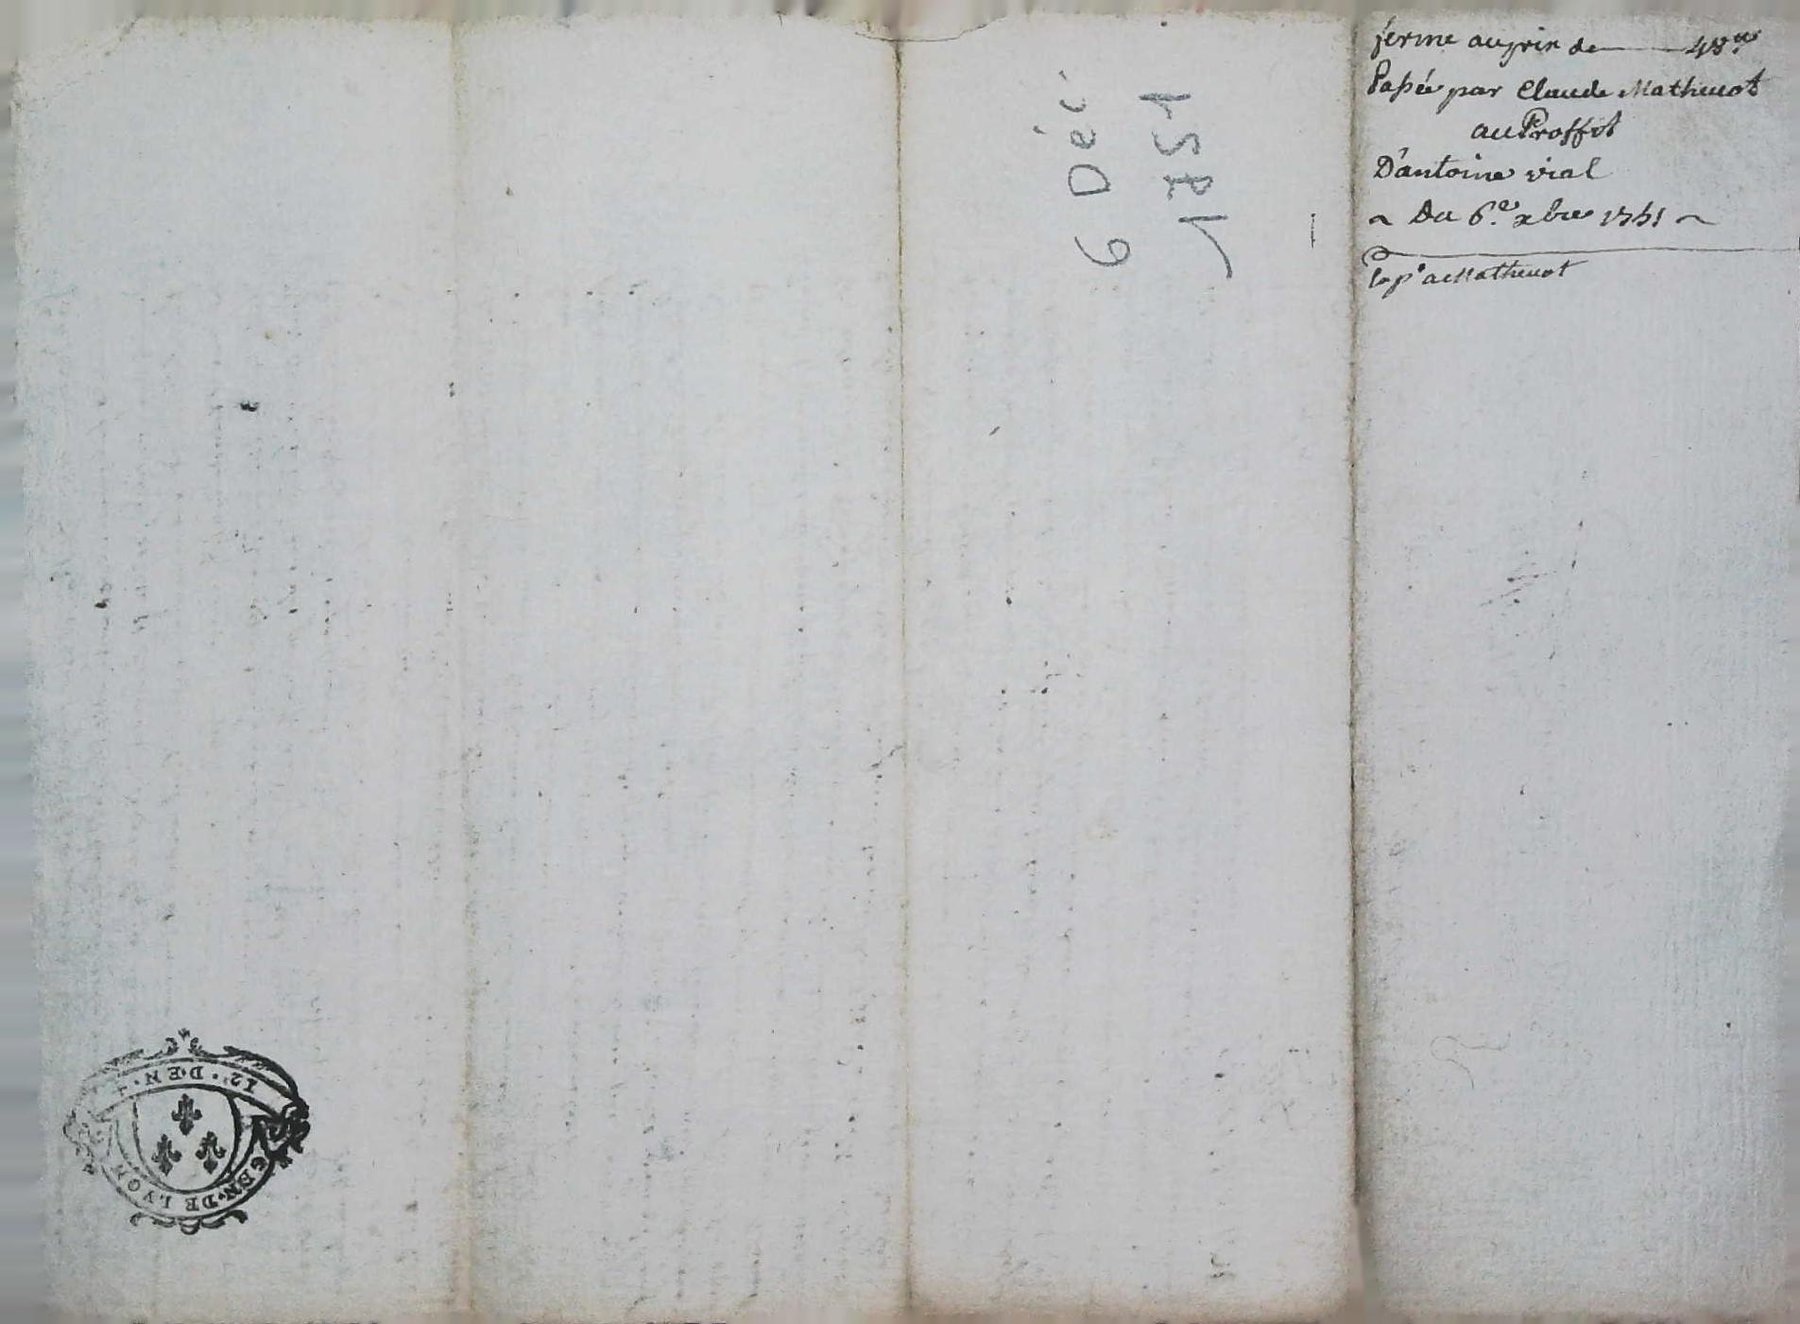 ferme au prix de 48ᵗᵗ
Passée par Claude Mathuuot
au Proffit
D'antoine vial
~ Du 6.ᵉ xbre 1751 ~
acMathuuot
6 Déc
1751
12. DEN.
GEN. DE LYON